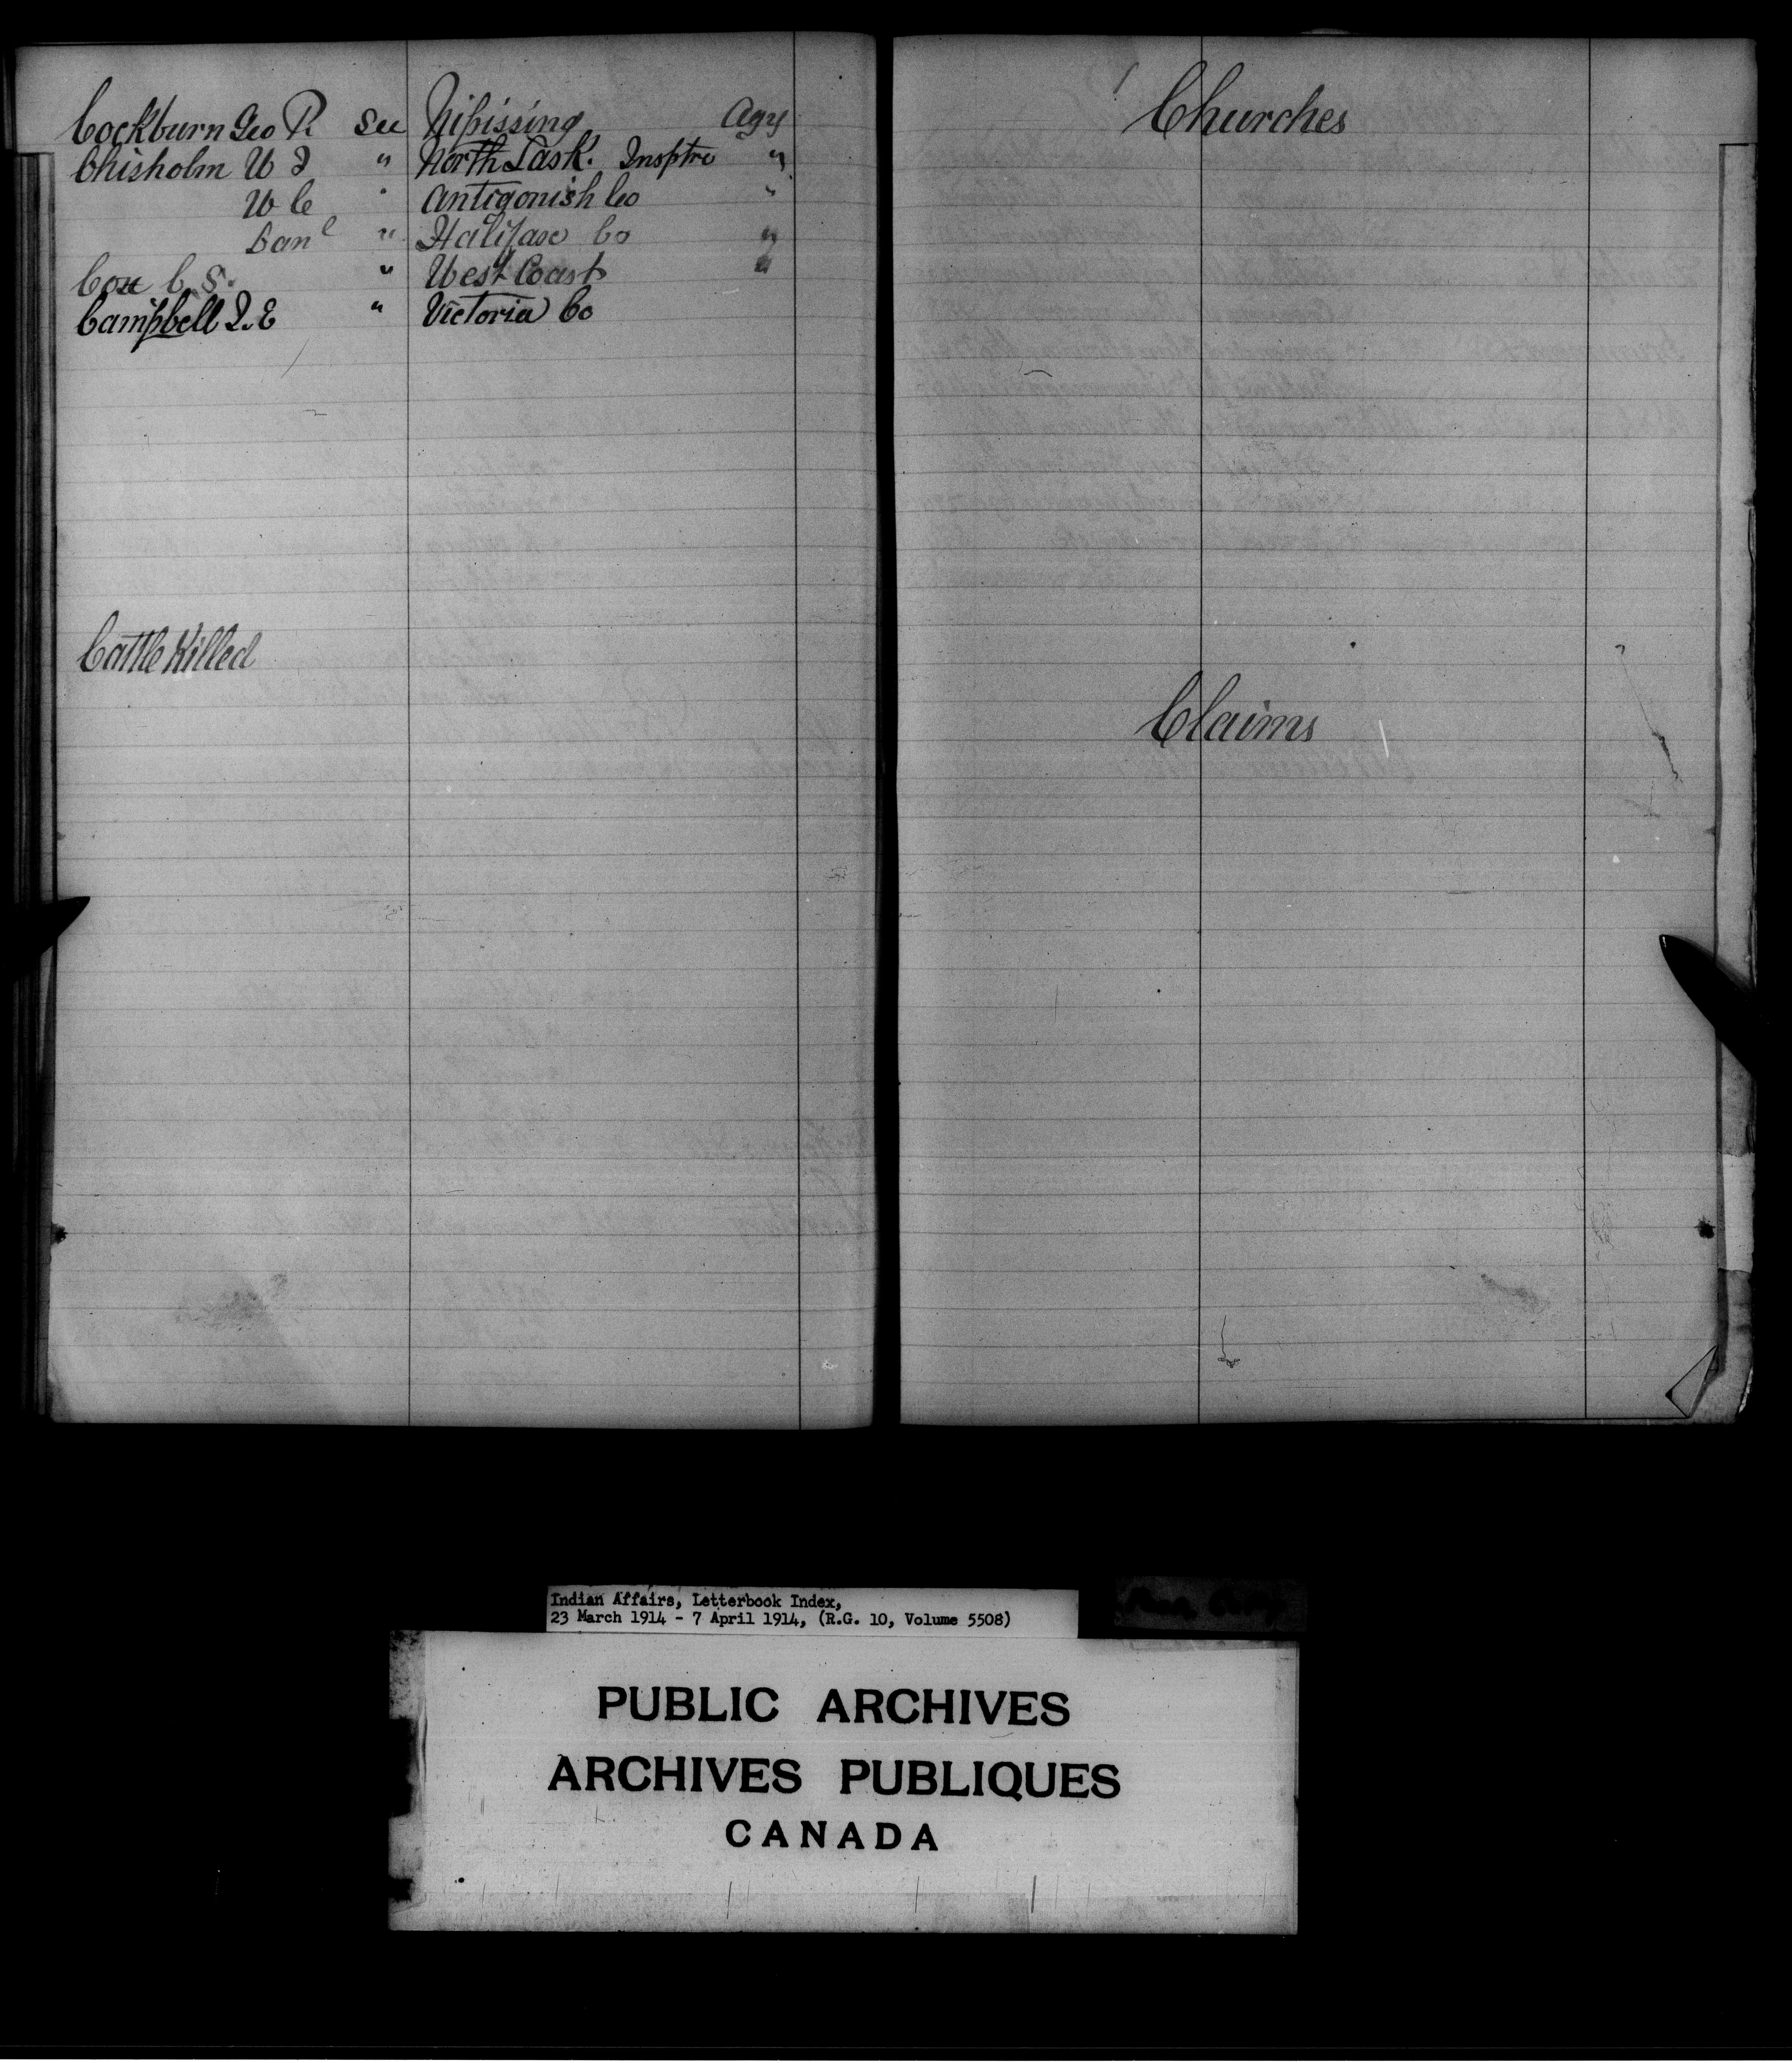 Cockburn Geo P. See Nipissing Agy
Chisholm W J " North Sask. Insptre "
W C " Antigonish Co "
Danl " Halifax Co "
Cox C. S. " West Coast "
Campbell J. E " Victoria Co
Cattle Killed
Churches
Claims
Indian Affairs, Letterbook Index,
23 March 1914 - 7 April 1914, (R.G. 10, Volume 5508)
PUBLIC ARCHIVES
ARCHIVES PUBLIQUES
CANADA